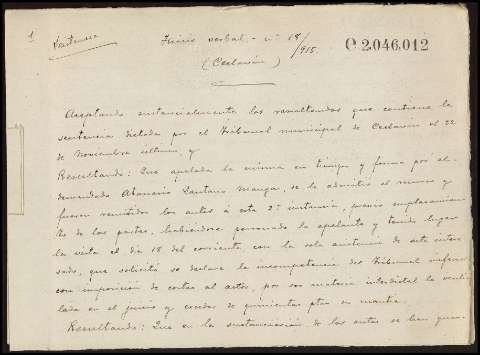 1
Sentencia
Juicio verbal - nº 18/915
C 2.046.012
(Ceclavín)
Aceptando sustancialmente los resultandos que contiene la
sentencia dictada por el Tribunal municipal de Ceclavín el 22
de Noviembre último y
Resultando: Que apelada la misma en tiempo y forma por el
demandado Atanasio Santano Manga, se le admitió el recurso y
fueron remitidos los autos á esta 2ª instancia, previo emplazamien
to de las partes, habiéndose personado la apelante y tenido lugar
la vista el día 18 del corriente con la sola asistencia de
que solicitó se declare la incompetencia del Tribunal inferior
con imposición de costas al actor, por ser materia interdictal la venti
lada en el juicio y exceder de quinientas ptas su cuantía.
Resultando: Que en la sustanciación de los autos se han guar-